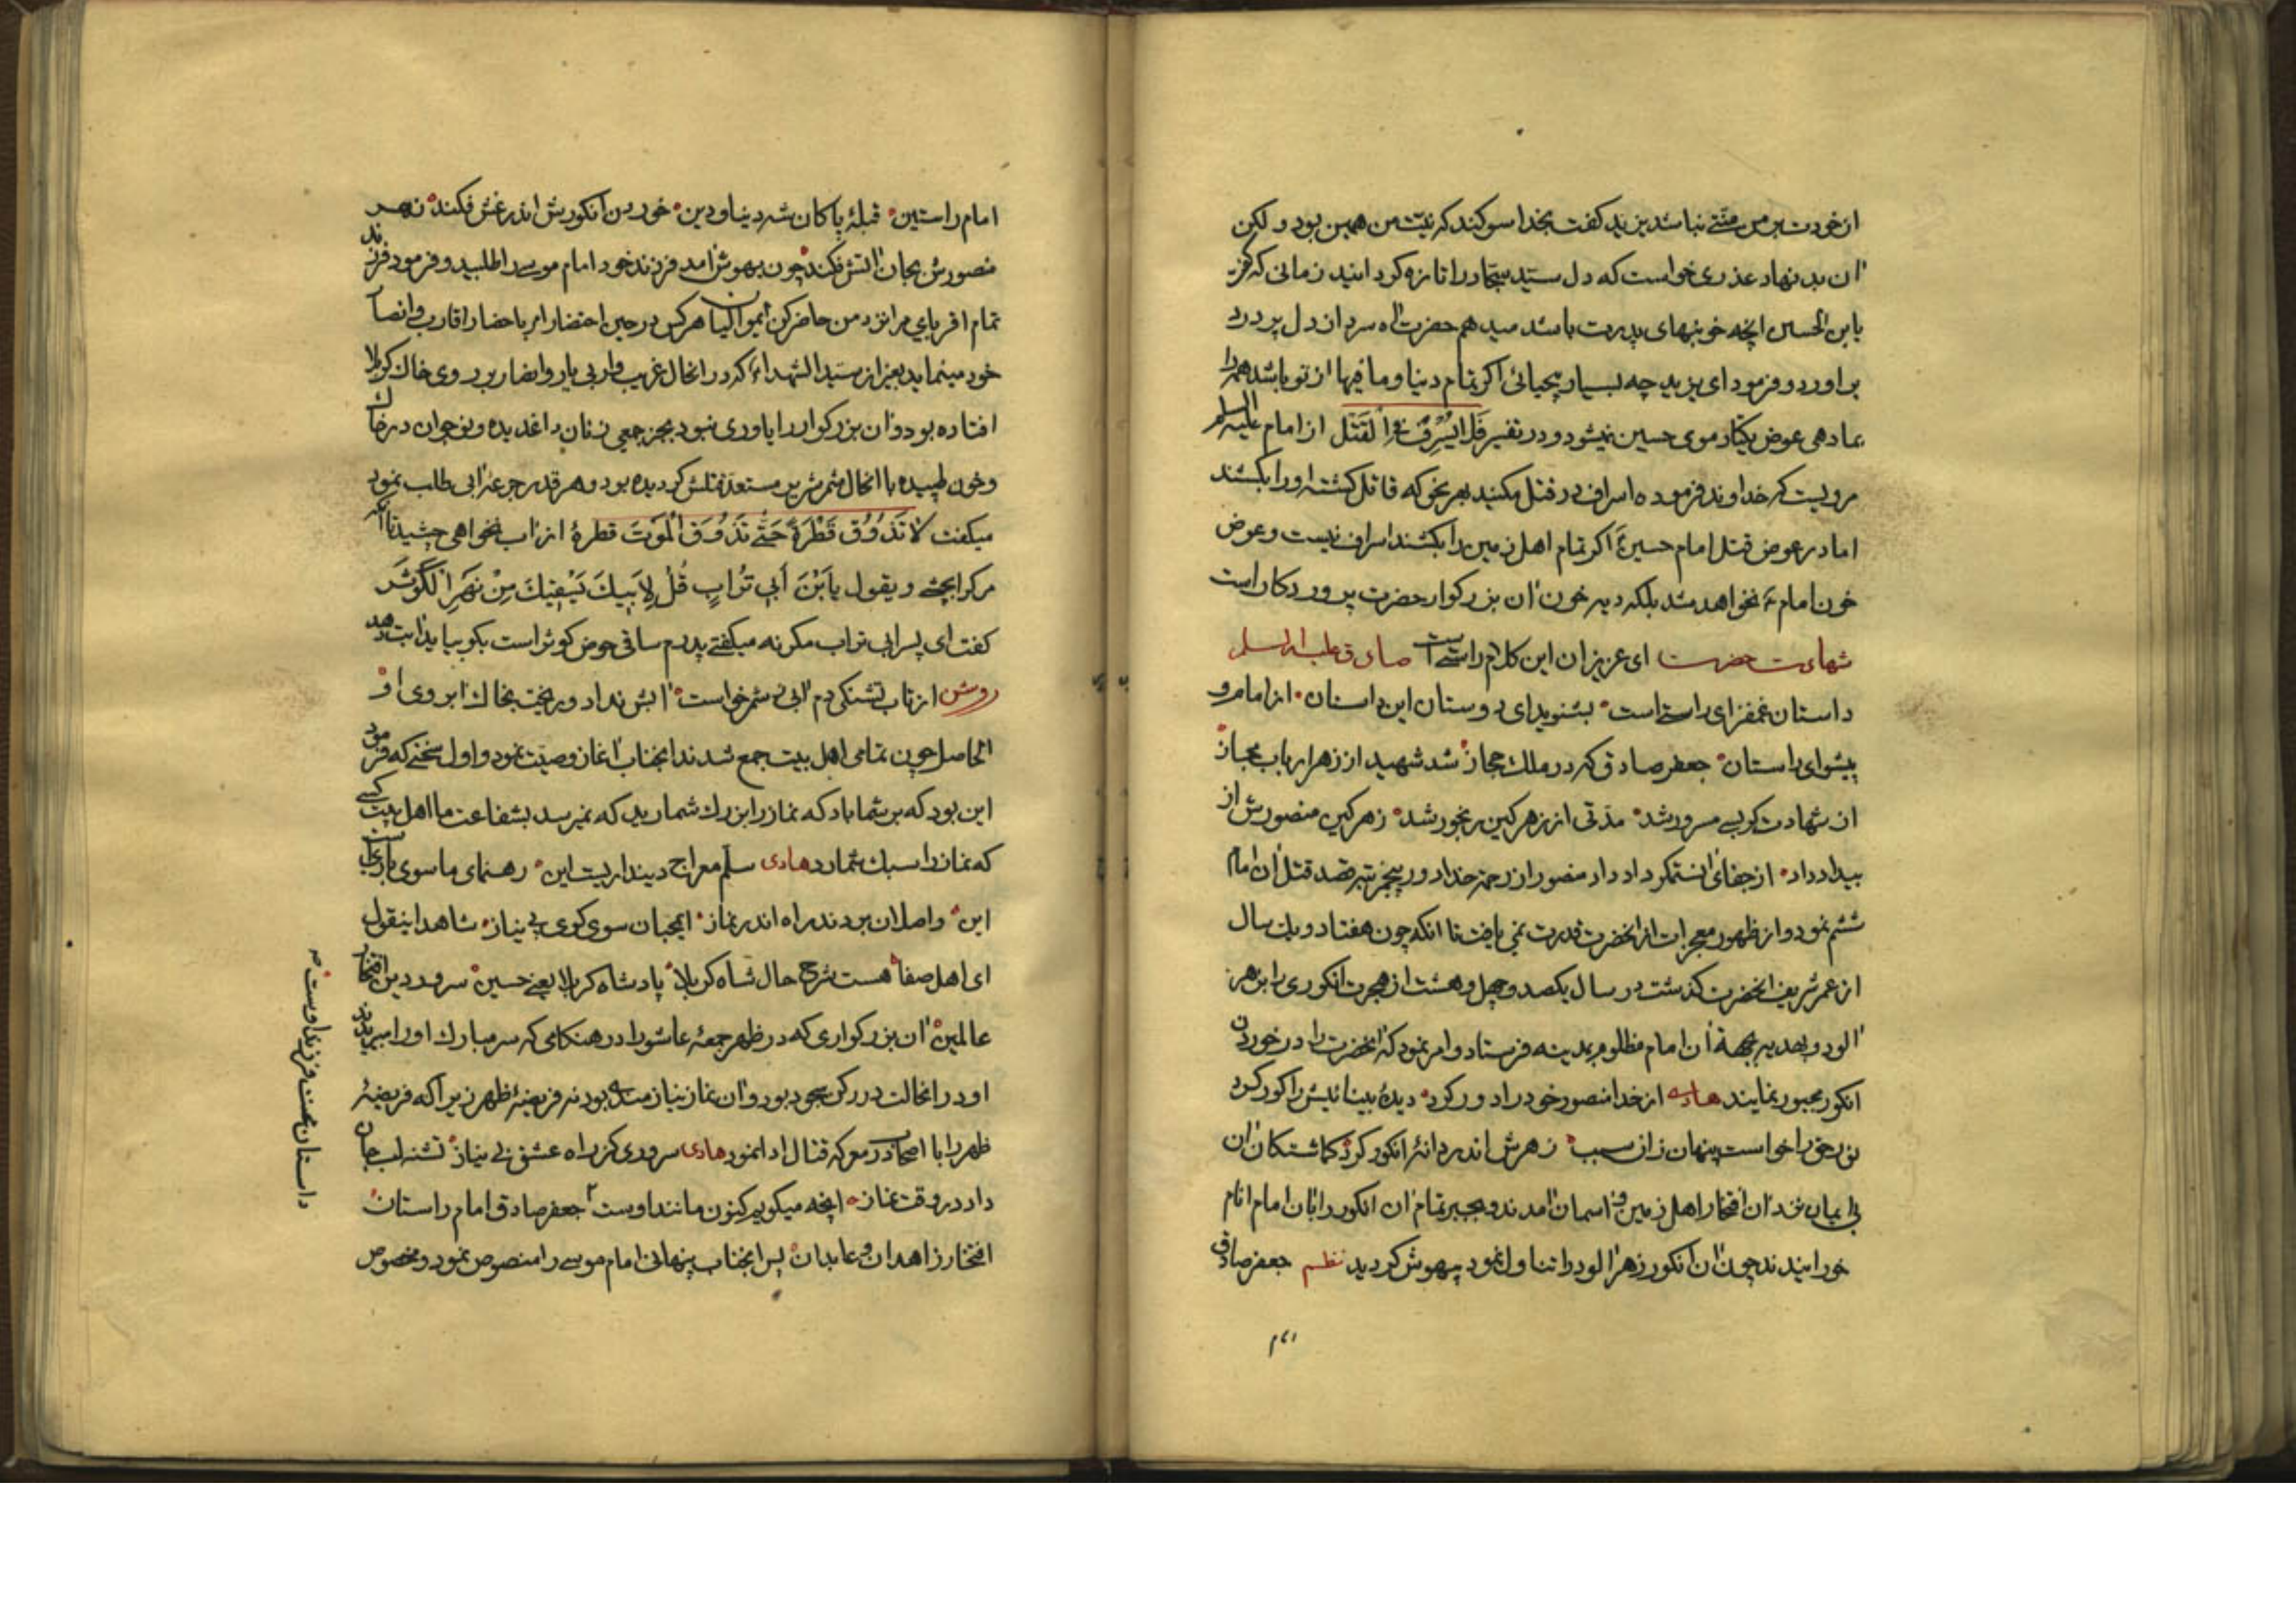 از خودت بر من منتی نباشد یزید کفت بخدا سوکند که نیت من همین بود و لکن
ان بد نهاد عذری خواست که دل سید سجاد را تازه کرداند زمانی که کفت
یابن الحسین انچه خونبهای پدرت باشد میدهم حضرت اه سرد از دل پر درد
براورد و فرمود ای یزید چه بسیار بیحیائی اکر تمام دنیا و ما فیها از تو باشد همه را
بما دهی عوض یکتار موی حسین نمیشود و در تفسیر فَلَا یُسْرِفْ فِی الْقَتْلِ از امام علیه السلام
مرویست که خداوند فرموده اسراف در قتل مکنید بهر نحوی که قاتل کشته او را بکشند
اما در عوض قتل امام حسین ع اکر تمام اهل زمین را بکشند اسراف نیست و عوض
خون امام ع نخواهد شد بلکه دیه خون ان بزرکوار حضرت پروردکار است
شهادت حضرت صادق علیه السلم ای عزیزان این کلام راستی است
داستان غمفزای راستی است بشنوید ای دوستان این داستان از امام و
پیشوای راستان جعفر صادق که در ملک حجاز شد شهید از زهر ارباب مجاز
از شهادت کو بسی مسرور شد مدتی از زهر کین رنجور شد زهر کین منصورش از
بیداد داد از جفای انستمکر داد داد منصور از رحمة خدا دور پنج مرتبه قصد قتل ان امام
ششم نمود و از ظهور معجزات از انحضرت قدرت نمی یافت تا انکه چون هفتاد و یک سال
از عمر شریف انحضرت کذشت در سال یکصد و چهل و هشت از هجرت انکوری را بزهر
الوده بهدیه بجهة ان امام مظلوم بمدینه فرستاد و امر نمود که انحضرت را در خوردن
انکور مجبور نمایند هادی از خدا منصور خود را دور کرد دیدهٔ بینائیش را کور کرد
نور حق را خواست پنهان زان سبب زهرش اندر دانهٔ انکور کرد کماشتکان ان
بی ایمان نزد ان افتخار اهل زمین و اسمان امدند و بجبر تمام ان انکور را بان امام انام
خورانیدند چون ان انکور زهر الود را تناول نمود بیهوش کردید نظم جعفر صادق
امام راستین قبلهٔ پاکان شه دنیا و دین خوردن انکورش اندر غش فکند زهر
منصورش بجان اتش فکند چون بهوش امد فرزند خود امام موسی را طلبید و فرمود فرزند
تمام اقربای مرا نزد من حاضر کن ایموالیان هرکس در حین احتضار امر باحضار اقارب و انصار
خود مینماید بغیر از سید الشهداء که در انحال غریب و بی یار و انصار بر روی خاک کربلا
افتاده بود و ان بزرکوار را یاوری نبود بجز جمعی زنان داغدیده و نوجوان در خاک
و خون طپیده با انحال شمر شریر مستعد قتلش کردیده بود و هر قدر جرعهٔ ابی طلب نمود
میکفت لا تَذُوُق قَطْرَةً حَتّی تَذُوُقَ الْمَوْتَ قطرهٔ از اب نخواهی چشید تا انکه
مرک را بچشی و یقول یابْنَ اَبی تُرابٍ قُلْ لِاَبیكَ یَسْقیكَ مِنْ نَهَرِ الْکَوْثَرِ
کفت ای پسر ابی تراب مکر نه میکفتی پدرم ساقی حوض کوثر است بکو بیاید ابت دهد
روشن از تاب تشنکی دم ابی ز شمر خواست ابش نداد و ریخت بخاک ابروی او
الحاصل چون تمامی اهل بیت جمع شدند انجناب اغاز وصیت نمود و اول سخنی که فرمود
این بود که بر شما باد که نماز را بزرک شمارید که نمیرسد بشفاعت ما اهل بیت کسی
که نماز را سبک شمارد هادی سلم معراج دینداریست این رهنمای ما سوی باریست
این واصلان بردند راه اندر نماز ایمحبان سوی کوی بی نیاز شاهد اینقول
ای اهل صفا هست شرح حال شاه کربلا پادشاه کربلا یعنی حسین سرور دین افتخار
عالمین ان بزرکواری که در ظهر جمعهٔ عاشورا در هنکامی که سر مبارک او را میبریدند
او در انحالت در رکن سجود بود و ان نماز نیازمندی بود نه فریضهٔ ظهر زیرا که فریضهٔ
ظهر را با اصحاب در معرکه قتال ادا نمود هادی سروری کز راه عشق بی نیاز تشنه لب جان
داد در وقت نماز انچه میکویم کنون مانند اوست جعفر صادق امام راستان
افتخار زاهدان و عابدان پس انجناب پنهانی امام موسی را منصوص نمود و مخصوص
داستان محنت فرزند اوست